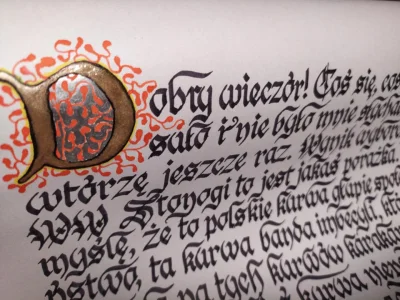 Dobry wieczór! Coś się, coś
sało i nie było mnie słychać
wtórzę jeszcze raz. Wynik wyborów
WW Stonogi to jest jakaś porażka.
myślę, że to polskie kurwa głupie społe
ństwo, ta kurwa banda imbecyli, któ
na tych kurwów karakan
kurwa